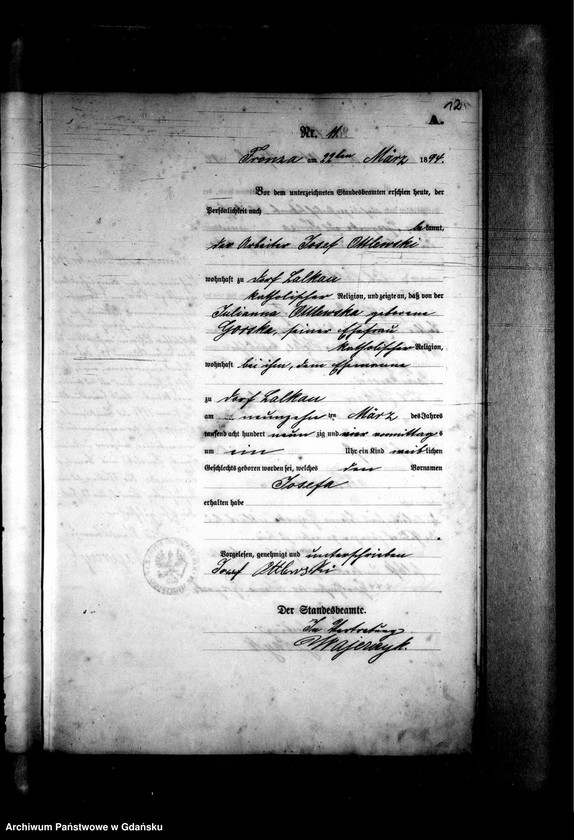 12
A.
Nr. 11.
Fronza am 22ten März 1894.
Vor dem unterzeichneten Standesbeamten erschien heute, der
Persönlichkeit nach
bekannt,
der Arbeiter Josef Ottlewski
wohnhaft zu Dorf Lalkau
katholischer Religion, und zeigte an, daß von der
Julianna Ottlewska geborene
Gorska, seiner Ehefrau
katholischer Religion,
wohnhaft bei ihm, dem Ehemanne
zu Dorf Lalkau
am neunzehn ten März des Jahres
tausend acht hundert neun zig und vier vormittags
um ein Uhr ein Kind weiblichen
Geschlechts geboren worden sei, welches den Vornamen
Josefa
erhalten habe
Vorgelesen, genehmigt und unterschrieben
Josef Ottlewski
Der Standesbeamte.
In Vertretung
Majerzyk.
Archiwum Państwowe w Gdańsku